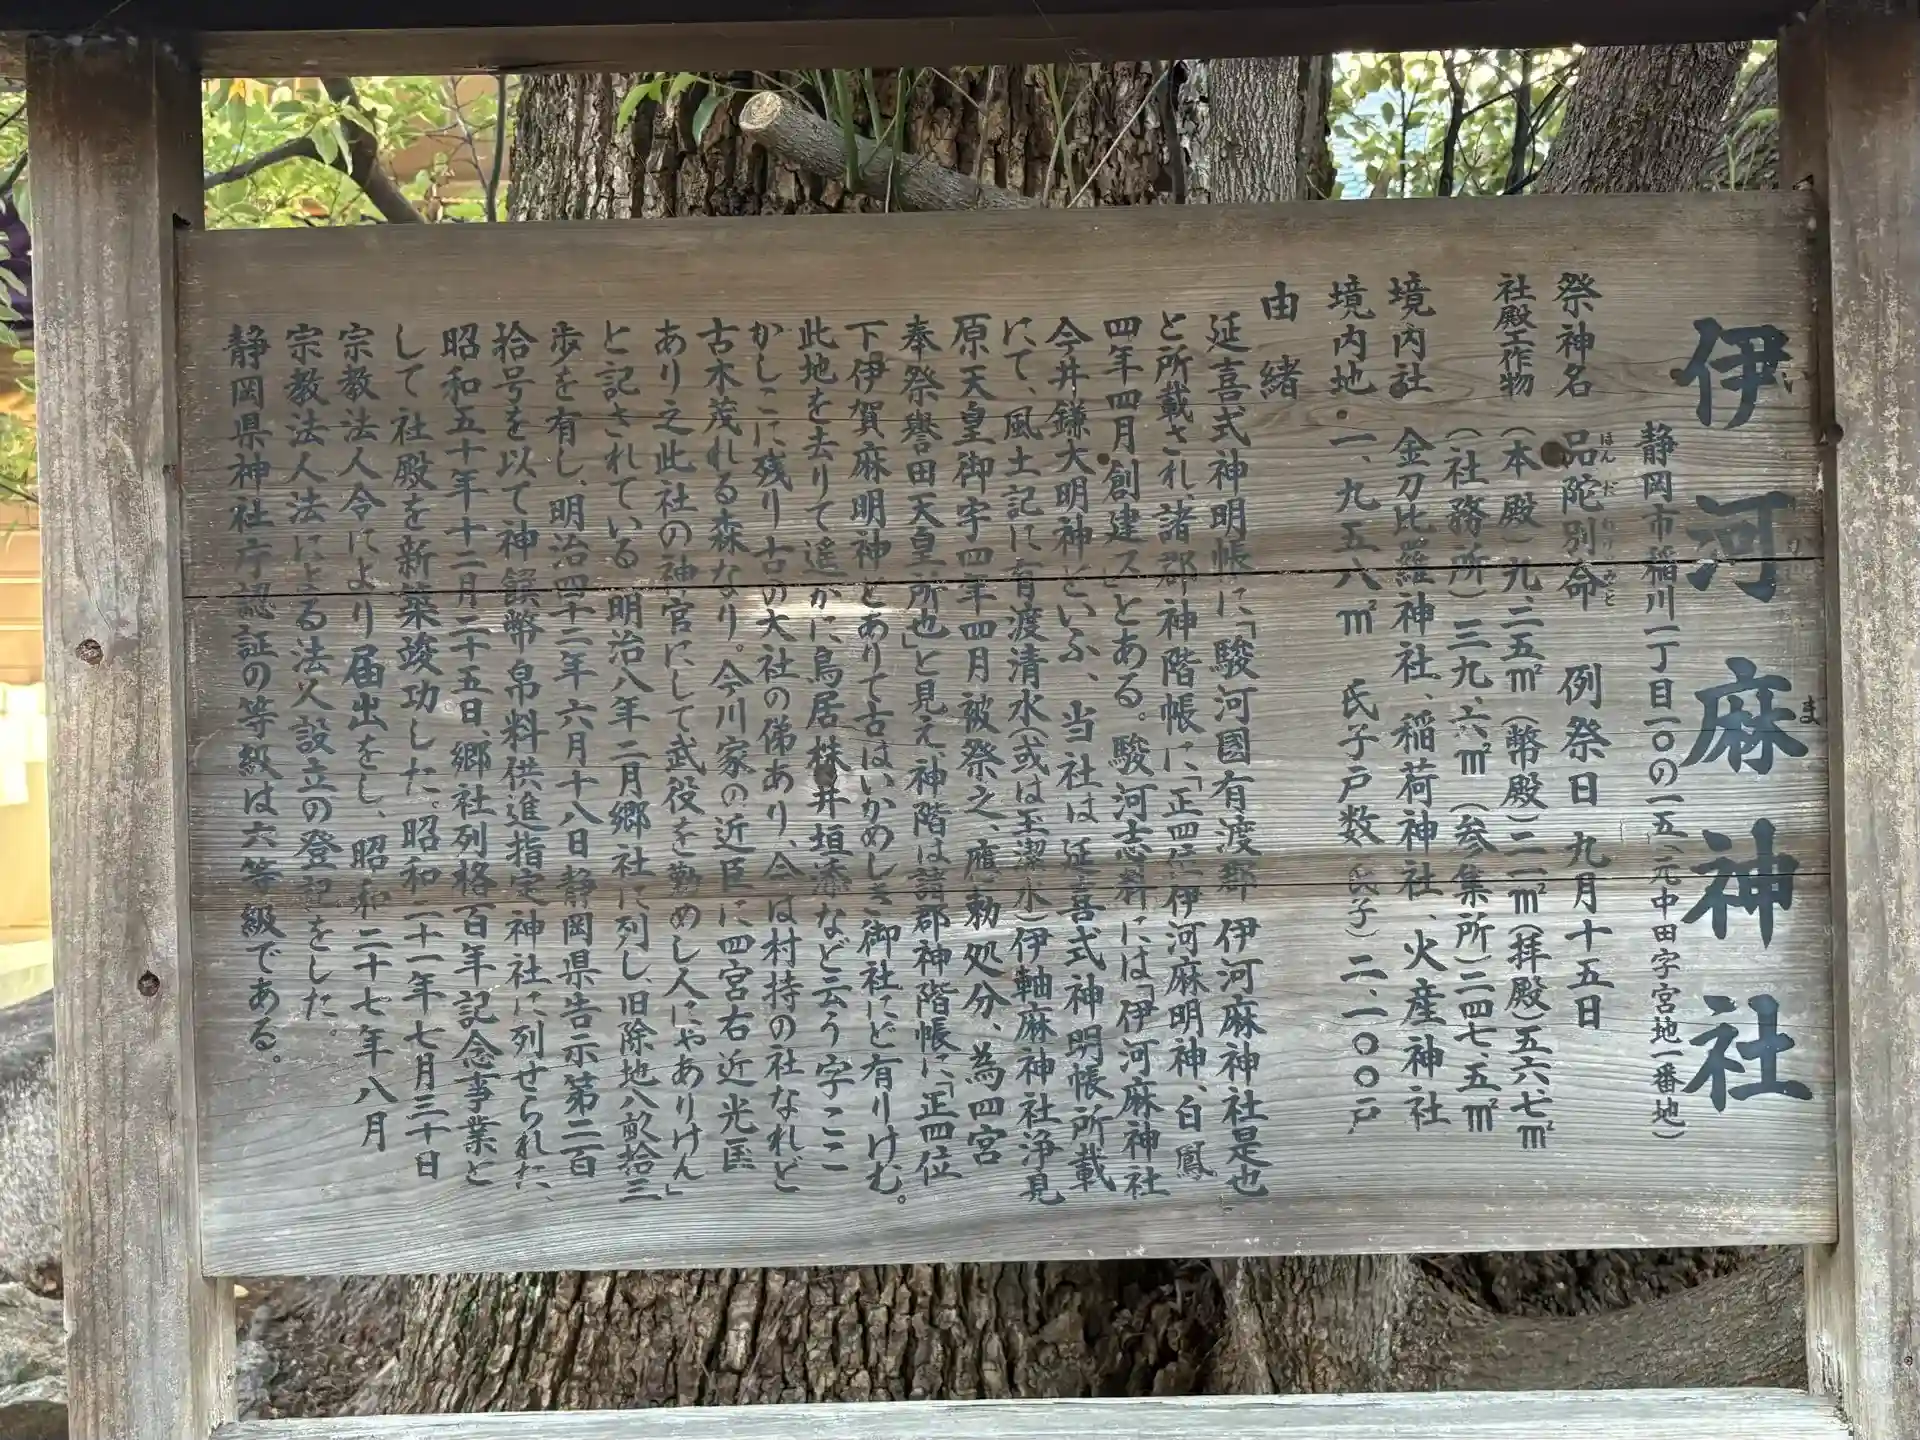 伊河麻神社
静岡市稲川一丁目一〇の一五、元中田字宮地一番地)
祭神名 品陀別命 例祭日 九月十五日
社殿工作物 (本殿)九、二五㎡ (幣殿)二一㎡(拝殿)五六七㎡
(社務所)三九、六㎡ (参集所)二四七、五㎡
境内社 金刀比羅神社、稲荷神社、火産神社
境内地 一、九五八㎡ 氏子戸数(氏子)二、一〇〇戸
由緒
延喜式神明帳に「駿河國有渡郡 伊河麻神社是也
と所載され、諸郡神階帳に「正四位伊河麻明神、白鳳
四年四月創建ス」とある。駿河志料には「伊河麻神社
今井鎌大明神といふ、当社は延喜式神明帳所載
にて、風土記に有渡清水(或は玉潔水)伊軸麻神社浄見
原天皇御宇四年四月被祭之、應勅処分、為四宮
奉祭誉田天皇所也」と見え、神階は諸郡神階帳に「正四位
下伊賀麻明神とありて古はいかめしき御社にど有りけむ。
此地を去りて遙かに鳥居株井垣添など云う字ここ
かしこに残り古の大社の俤あり、今は村持の社なれど
古木茂れる森なり。今川家の近臣に四宮右近光匡
あり之此社の神官にして武役を勤めし人にやありけん」
と記されている 明治八年二月郷社に列し、旧除地八畝拾三
歩を有し、明治四十二年六月十八日静岡県告示第二百
拾号を以て神饌幣帛料供進指定神社に列せられた、
昭和五十年十二月二十五日、郷社列格百年記念事業と
して社殿を新築竣功した。昭和二十一年七月三十日
宗教法人令により届出をし、昭和二十七年八月
宗教法人法による法人設立の登記をした。
静岡県神社庁認証の等級は六等級である。